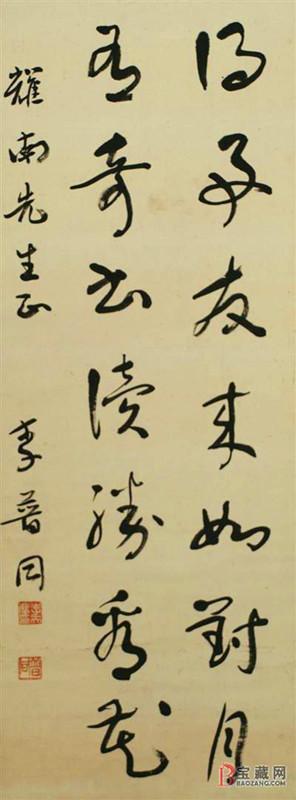 得好友來如對月
有奇書讀勝看花
耀南先生正 李普同
宝藏网
BAOZANG.COM